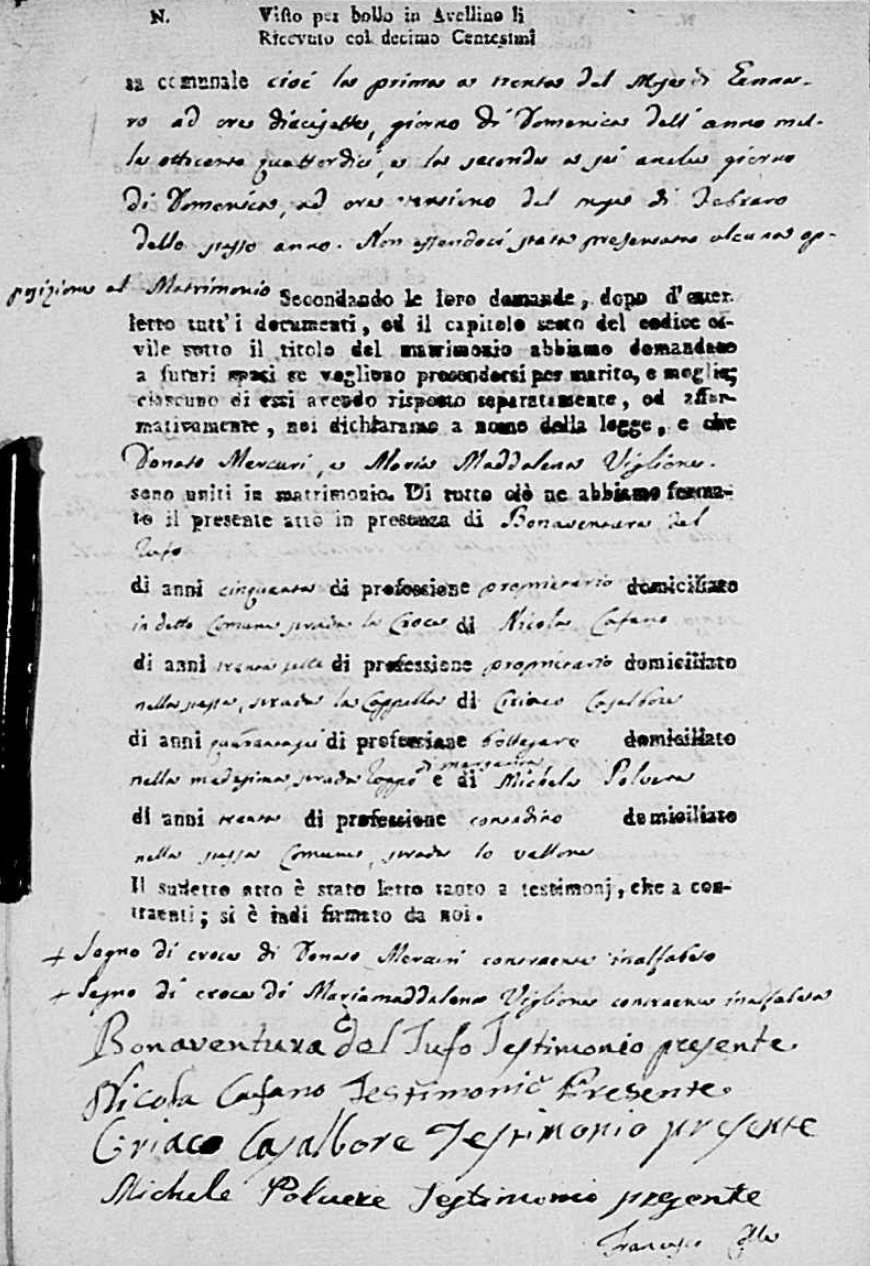 N. Visto per bollo in Avellino li
Ricevuto col decimo Centesimi
sa comunale cioè la prima a trenta del Mese di Genna-
ro ad ore diecisette, giorno di Domenica dell' anno mil-
le ottocento quattordici, e la seconda a sei anche giorno
di Domenica, ad ore ventuno del mese di Febraro
dello stesso anno. Non essendoci stata presentata alcuna op-
posizione al Matrimonio Secondando le loro domande, dopo d'aver
letto tutt'i documenti, ed il capitolo sesto del codice ci-
vile sotto il titolo del matrimonio abbiamo domandato
a futuri sposi se vogliono prendersi per marito, e moglie;
ciascuno di essi avendo risposto separatamente, ed affer-
mativamente, noi dichiaramo a nome della legge, e che
Donato Mercuri, e Maria Maddalena Viglione.
sono uniti in matrimonio. Di tutto ciò ne abbiamo forma-
to il presente atto in presenza di Bonaventura del
Tufo
di anni cinquanta di professione proprietario domiciliato
in detto Comune strada la Croce di Nicola Cafano
di anni trenta sette di professione proprietario domiciliato
nella stessa, strada la Cappella di Ciriaco Casalbore
di anni quarantasei di professione bottegaro domiciliato
nella medesima, strada e di Michele Polvere
di anni trenta di professione contadino domiciliato
nello stesso Comune, strada lo vallone
Il sudetto atto è stato letto tanto a testimonj, che a con-
traenti; si è indi firmato da noi.
+ Segno di croce di Donato Mercuri contraente inalfabeto
+ Segno di croce di Mariamaddalena Viglione contraente inalfabeta
Bonaventura del Tufo Testimonio presente.
Nicola Cafano Testimonio Presente.
Ciriaco Casalbore Testimonio presente
Michele Polvere Testimonio presente
Francesco